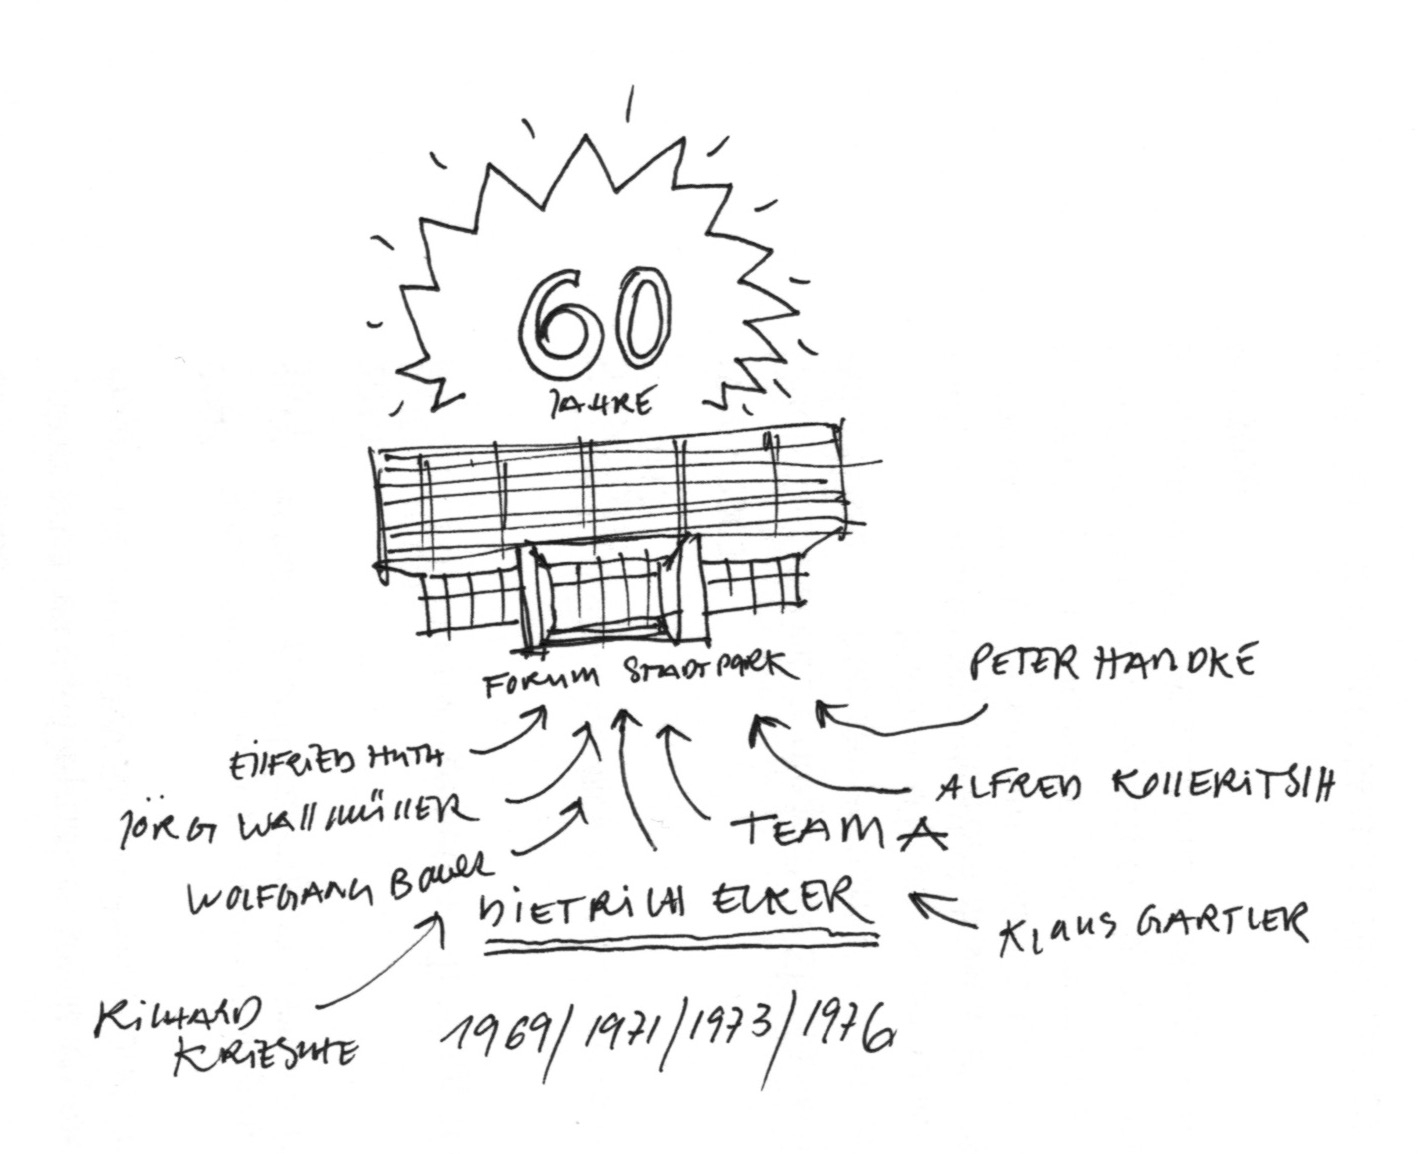 60
JAHRE
FORUM STADTPARK
PETER HANDKE
EilFRiED HUTH
ALFRED KOllERiTSCH
JÖRG WAllMÜllER
TEAM A
WOLFGANG BAUER
DiETRiCH ECKER
KlAUS GARTLER
RiCHARD
KRiESCHE
1969/1971/1973/1976